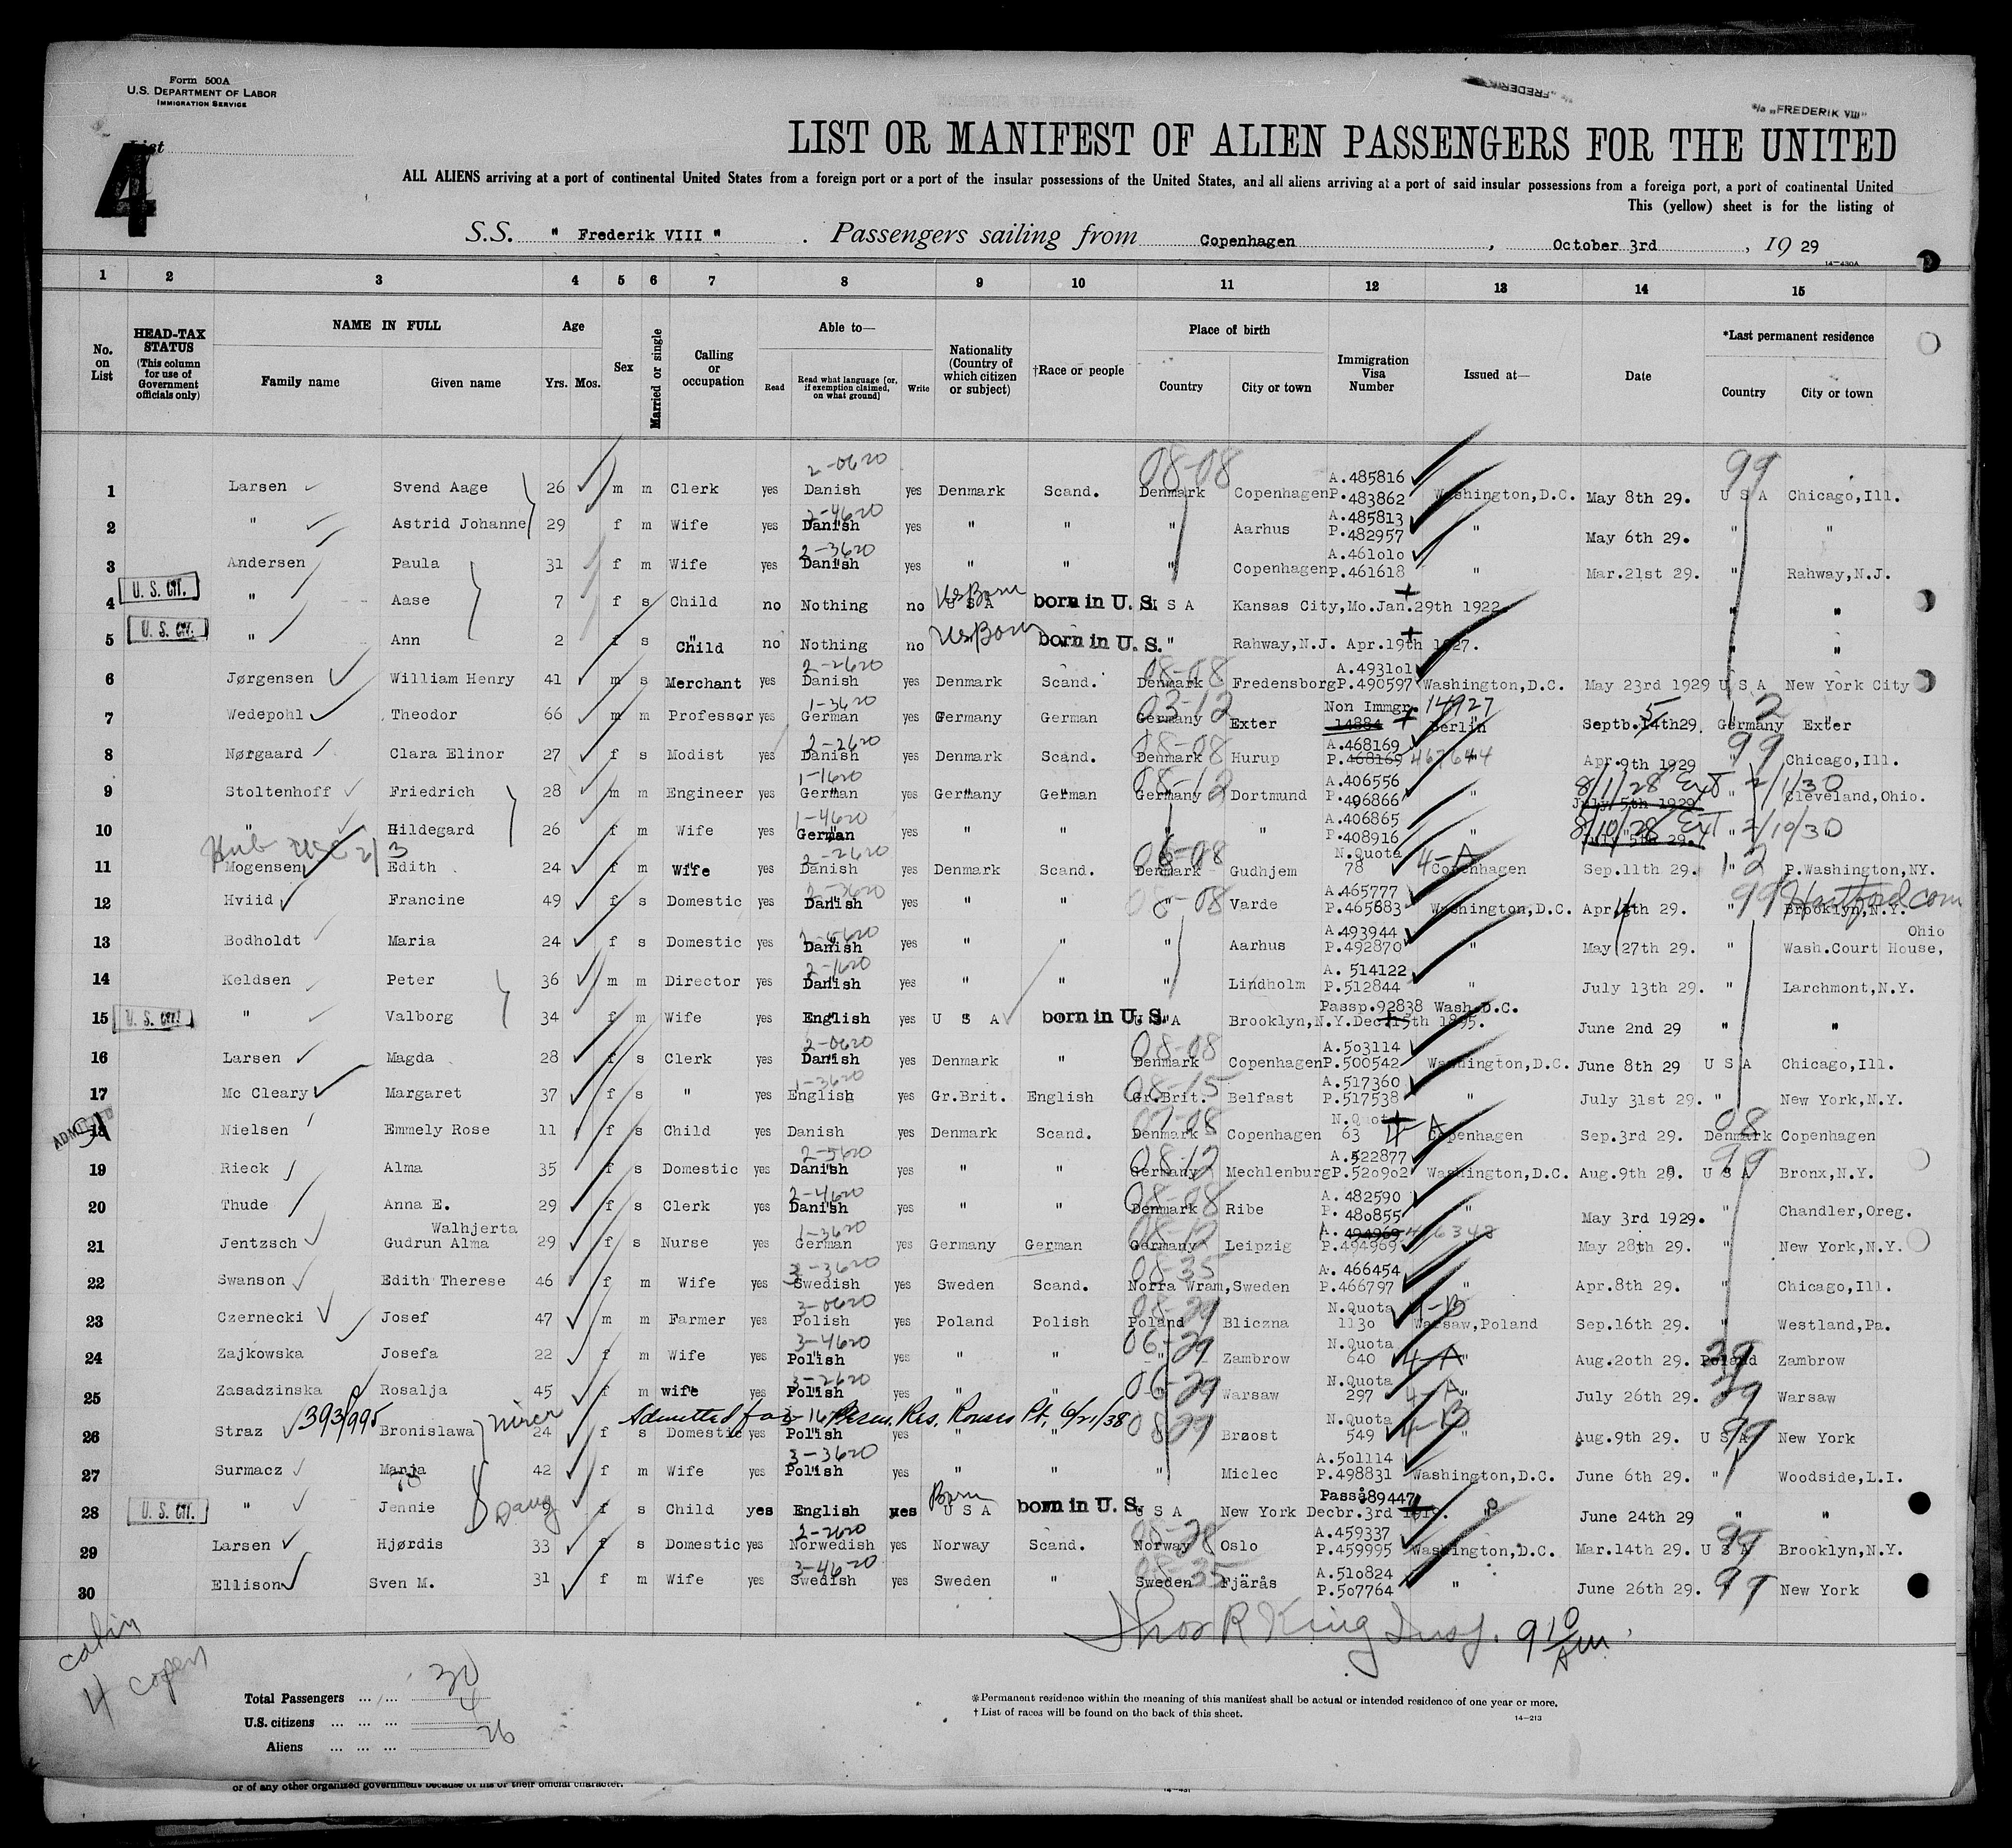 Form 500A
U.S. DEPARTMENT OF LABOR
IMMIGRATION SERVICE
S/S „FREDERIK VIII"
List 4
LIST OR MANIFEST OF ALIEN PASSENGERS FOR THE UNITED
ALL ALIENS arriving at a port of continental United States from a foreign port or a port of the insular possessions of the United States, and all aliens arriving at a port of said insular possessions from a foreign port, a port of continental United
This (yellow) sheet is for the listing of
S.S. " Frederik VIII " . Passengers sailing from Copenhagen , October 3rd , 19 29
14—430A
1 2 3 4 5 6 7 8 9 10 11 12 13 14 15
No. on List
HEAD-TAX STATUS (This column for use of Government officials only)
NAME IN FULL Family name Given name
Age Yrs. Mos.
Sex
Married or single
Calling or occupation
Able to— Read Read what language [or, if exemption claimed, on what ground] Write
Nationality (Country of which citizen or subject)
†Race or people
Place of birth Country City or town
Immigration Visa Number
Issued at—
Date
*Last permanent residence Country City or town
2-0620 08-08 A.485816 99
1 Larsen Svend Aage 26 m m Clerk yes Danish yes Denmark Scand. Denmark Copenhagen P.483862 Washington,D.C. May 8th 29. U S A Chicago,Ill.
2-4620 A.485813
2 " Astrid Johanne 29 f m Wife yes Danish yes " " " Aarhus P.482957 " May 6th 29. " "
2-3620 A.461010
3 Andersen Paula 31 f m Wife yes Danish yes " " " Copenhagen P.461618 " Mar.21st 29. " Rahway,N.J.
U. S. CIT.
4 " Aase 7 f s Child no Nothing no U S A US Born born in U. S. U S A Kansas City,Mo.Jan.29th 1922 " "
U. S. CIT.
5 " Ann 2 f s Child no Nothing no US Born born in U. S. " Rahway,N.J. Apr.19th 1927. " "
2-2620 08-08 A.493101
6 Jørgensen William Henry 41 m s Merchant yes Danish yes Denmark Scand. Denmark Fredensborg P.490597 Washington,D.C. May 23rd 1929 U S A New York City
1-3620 03-12 Non Immgr. 14927 5 12
7 Wedepohl Theodor 66 m m Professor yes German yes Germany German Germany Exter 14884 Berlin Septb.14th29. Germany Exter
2-2620 08-08 A.468169 99
8 Nørgaard Clara Elinor 27 f s Modist yes Danish yes Denmark Scand. Denmark Hurup P.468169 467644 " Apr.9th 1929 " Chicago,Ill.
1-1620 08-12 A.406556 8/1/28 Ext 2/1/30
9 Stoltenhoff Friedrich 28 m m Engineer yes German yes Germany German Germany Dortmund P.406866 " July 5th 1929 " Cleveland,Ohio.
1-4620 A.406865 8/10/28 Ext 2/10/30
10 " Hildegard 26 f m Wife yes German yes " " " " P.408916 " July 5th 29. " "
2-2620 06-08 N.Quota 4-A 12
11 Mogensen Edith 24 f m Wife yes Danish yes Denmark Scand. Denmark Gudhjem 78 Copenhagen Sep.11th 29. " P.Washington,NY.
2-3620 08-08 A.465777 99 Hartford Conn
12 Hviid Francine 49 f s Domestic yes Danish yes " " " Varde P.465683 Washington,D.C. Apr 4th 29. " Brooklyn,N.Y.
A.493944 Ohio
13 Bodholdt Maria 24 f s Domestic yes Danish yes " " " Aarhus P.492870 " May 27th 29. " Wash.Court House,
2-1620 A. 514122
14 Keldsen Peter 36 m m Director yes Danish yes " " " Lindholm P.512844 " July 13th 29. " Larchmont,N.Y.
U. S. CIT. Passp.92838 Wash.D.C.
15 " Valborg 34 f m Wife yes English yes U S A born in U. S. U S A Brooklyn,N.Y.Dec.15th 1895. June 2nd 29 " "
2-0620 08-08 A.503114
16 Larsen Magda 28 f s Clerk yes Danish yes Denmark " Denmark Copenhagen P.500542 Washington,D.C. June 8th 29 U S A Chicago,Ill.
1-3620 08-15 A.517360
17 Mc Cleary Margaret 37 f s " yes English yes Gr.Brit. English Gr.Brit. Belfast P.517538 " July 31st 29. " New York,N.Y.
ADMITTED 07-08 N.Quota 4-A 08
18 Nielsen Emmely Rose 11 f s Child yes Danish yes Denmark Scand. Denmark Copenhagen 63 Copenhagen Sep.3rd 29. Denmark Copenhagen
2-5620 08-12 A.522877 99
19 Rieck Alma 35 f s Domestic yes Danish yes " " Germany Mechlenburg P.520902 Washington,D.C. Aug.9th 29. U S A Bronx,N.Y.
2-4620 08-08 A. 482590
20 Thude Anna E. 29 f s Clerk yes Danish yes " " Denmark Ribe P. 480855 " May 3rd 1929. " Chandler,Oreg.
Walhjerta 1-3620 08-12 A. 494969
21 Jentzsch Gudrun Alma 29 f s Nurse yes German yes Germany German Germany Leipzig P.494969 May 28th 29. " New York,N.Y.
3-3620 08-35 A. 466454
22 Swanson Edith Therese 46 f m Wife yes Swedish yes Sweden Scand. Norra Wram,Sweden P.466797 " Apr.8th 29. " Chicago,Ill.
3-0620 08-29 N.Quota 4-B
23 Czernecki Josef 47 m m Farmer yes Polish yes Poland Polish Poland Bliczna 1130 Warsaw,Poland Sep.16th 29. " Westland,Pa.
3-4620 06-29 N.Quota 4-A 29
24 Zajkowska Josefa 22 f m Wife yes Polish yes " " " Zambrow 640 " Aug.20th 29. Poland Zambrow
3-2620 06-29 N.Quota 4-A 29
25 Zasadzinska Rosalja 45 f m wife yes Polish yes " " " Warsaw 297 " July 26th 29. " Warsaw
393/995 Niece Admitted for Perm. Res. Rouses Pt. 6/21/38 08 29 N.Quota 4-B 99
26 Straz Bronislawa 24 f s Domestic yes Polish yes " " Brzost 549 " Aug.9th 29. U S A New York
3-3620 A.501114
27 Surmacz Manja 42 f m Wife yes Polish yes " " " Miclec P.498831 Washington,D.C. June 6th 29. " Woodside,L.I.
U. S. CIT. Daug Born Passp.89447
28 " Jennie f s Child yes English yes U S A born in U. S. U S A New York Decbr.3rd 1919. " June 24th 29 " "
2-2620 08-28 A.459337 99
29 Larsen Hjørdis 33 f s Domestic yes Norwedish yes Norway Scand. Norway Oslo P.459995 Washington,D.C. Mar.14th 29. U S A Brooklyn,N.Y.
3-4620 08-35 A.510824 99
30 Ellison Sven M. 31 f m Wife yes Swedish yes Sweden " Sweden Fjärås P.507764 " June 26th 29. New York
Thos R King Insp. 9 10 AM
cabin
4 copen
Total Passengers ... ... 30
U.S. citizens ... ... ... 4
Aliens ... ... ... 26
*Permanent residence within the meaning of this manifest shall be actual or intended residence of one year or more.
† List of races will be found on the back of this sheet.
14—213
or of any other organized government because of his or their official character.